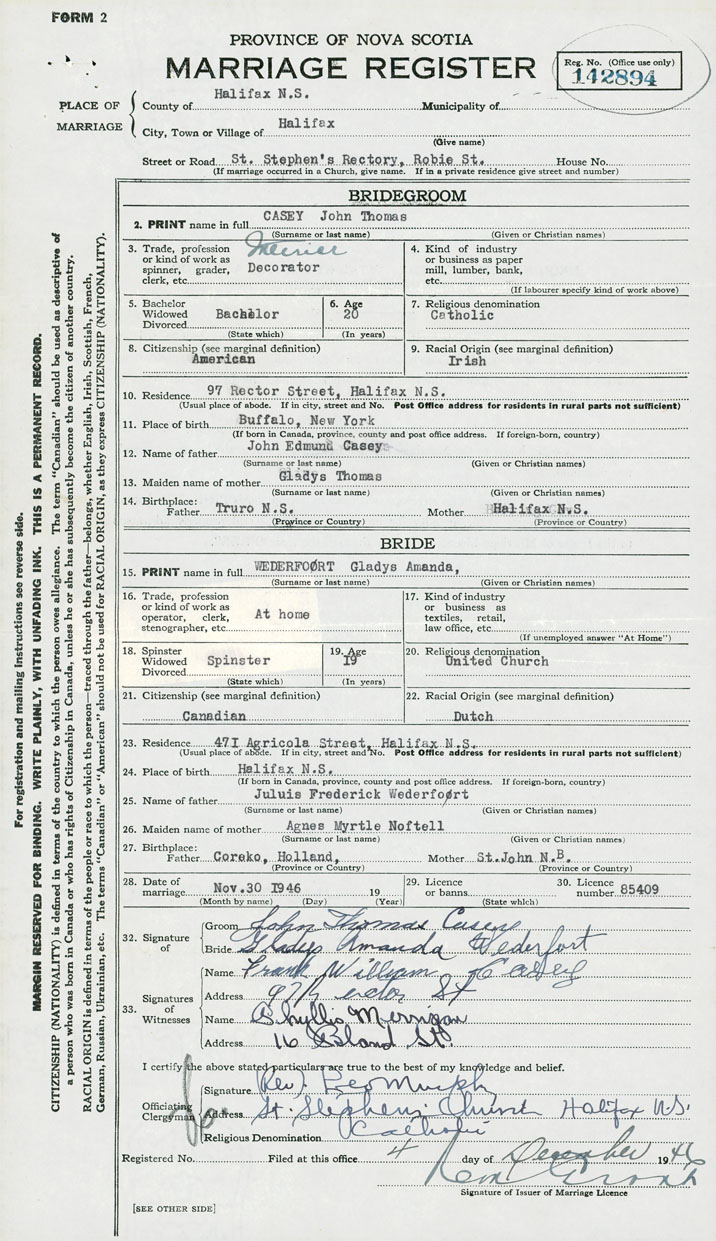 FORM 2
PROVINCE OF NOVA SCOTIA
MARRIAGE REGISTER
Reg. No. (Office use only)
142894
PLACE OF MARRIAGE
County of Halifax N.S. Municipality of
City, Town or Village of Halifax
(Give name)
Street or Road St. Stephen's Rectory, Robie St. House No.
(If marriage occurred in a Church, give name. If in a private residence give street and number)
BRIDEGROOM
2. PRINT name in full CASEY John Thomas
(Surname or last name) (Given or Christian names)
3. Trade, profession or kind of work as spinner, grader, clerk, etc. Decorator
4. Kind of industry or business as paper mill, lumber, bank, etc.
(If labourer specify kind of work above)
5. Bachelor Widowed Divorced Bachelor
(State which)
6. Age 20
(In years)
7. Religious denomination Catholic
8. Citizenship (see marginal definition) American
9. Racial Origin (see marginal definition) Irish
10. Residence 97 Rector Street, Halifax N.S.
(Usual place of abode. If in city, street and No. Post Office address for residents in rural parts not sufficient)
11. Place of birth Buffalo, New York
(If born in Canada, province, county and post office address. If foreign-born, country)
12. Name of father John Edmund Casey
(Surname or last name) (Given or Christian names)
13. Maiden name of mother Gladys Thomas
(Surname or last name) (Given or Christian names)
14. Birthplace: Father Truro N.S. Mother Halifax N.S.
(Province or Country) (Province or Country)
BRIDE
15. PRINT name in full WEDERFOØRT Gladys Amanda,
(Surname or last name) (Given or Christian names)
16. Trade, profession or kind of work as operator, clerk, stenographer, etc. At home
17. Kind of industry or business as textiles, retail, law office, etc.
(If unemployed answer "At Home")
18. Spinster Widowed Divorced Spinster
(State which)
19. Age I9
(In years)
20. Religious denomination United Church
21. Citizenship (see marginal definition) Canadian
22. Racial Origin (see marginal definition) Dutch
23. Residence 47I Agricola Street, Halifax N.S.
(Usual place of abode. If in city, street and No. Post Office address for residents in rural parts not sufficient)
24. Place of birth Halifax N.S.
(If born in Canada, province, county and post office address. If foreign-born, country)
25. Name of father Juluis Frederick Wederfoørt
(Surname or last name) (Given or Christian names)
26. Maiden name of mother Agnes Myrtle Noftell
(Surname or last name) (Given or Christian names)
27. Birthplace: Father Coreko, Holland, Mother St.John N.B.
(Province or Country) (Province or Country)
28. Date of marriage Nov.30 I946 19
(Month by name) (Day) (Year)
29. Licence or banns
(State which)
30. Licence number 85409
32. Signature of
Groom John Thomas Casey
Bride Gladys Amanda Wederfort
33. Signatures of Witnesses
Name Frank William Casey
Address 97 ector St
Name Phyllis Merrigan
Address 16 Bland St.
I certify the above stated particulars are true to the best of my knowledge and belief.
Officiating Clergyman
Signature Rev. Leo Murphy
Address St. Stephens Church Halifax N.S.
Religious Denomination Catholic
Registered No. Filed at this office 4 day of December 1946
Signature of Issuer of Marriage Licence
[SEE OTHER SIDE]
For registration and mailing instructions see reverse side.
MARGIN RESERVED FOR BINDING. WRITE PLAINLY, WITH UNFADING INK. THIS IS A PERMANENT RECORD.
CITIZENSHIP (NATIONALITY) is defined in terms of the country to which the person owes allegiance. The term "Canadian" should be used as descriptive of
a person who was born in Canada or who has rights of Citizenship in Canada, unless he or she has subsequently become the citizen of another country.
RACIAL ORIGIN is defined in terms of the people or race to which the person—traced through the father—belongs, whether English, Irish, Scottish, French,
German, Russian, Ukrainian, etc. The terms "Canadian" or "American" should not be used for RACIAL ORIGIN, as they express CITIZENSHIP (NATIONALITY).